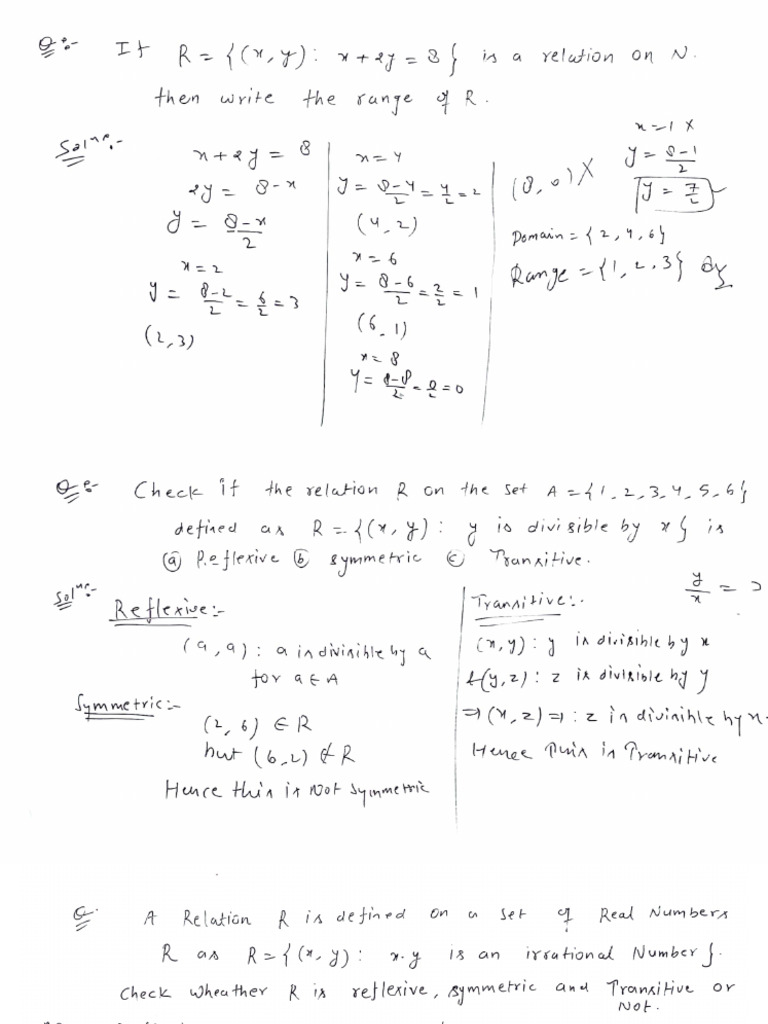 Q:- If R = {(x, y) : x + 2y = 8} is a relation on N.
then write the range of R.
Soln:-
x + 2y = 8
2y = 8 - x
y = (8 - x)/2
x = 2
y = (8-2)/2 = 6/2 = 3
(2, 3)
x = 4
y = (8-4)/2 = 4/2 = 2
(4, 2)
x = 6
y = (8-6)/2 = 2/2 = 1
(6, 1)
x = 8
y = (8-8)/2 = 0/2 = 0
(8, 0) X
x = 1 X
y = (8-1)/2
y = 7/2
Domain = {2, 4, 6}
Range = {1, 2, 3}
Q:- Check if the relation R on the set A = {1, 2, 3, 4, 5, 6}
defined as R = {(x, y) : y is divisible by x} is
(a) Reflexive (b) symmetric (c) Transitive.
Soln:-
Reflexive:-
(a, a) : a is divisible by a
for a ∈ A
Symmetric:-
(2, 6) ∈ R
but (6, 2) ∉ R
Hence this is Not symmetric
y/x =
Transitive:-
(x, y) : y is divisible by x
&(y, z) : z is divisible by y
⇒ (x, z) ⇒ : z is divisible by x.
Hence this is Transitive
Q. A Relation R is defined on a set of Real Numbers
R as R = {(x, y) : x.y is an irrational Number}.
Check wheather R is reflexive, symmetric and Transitive or
Not.